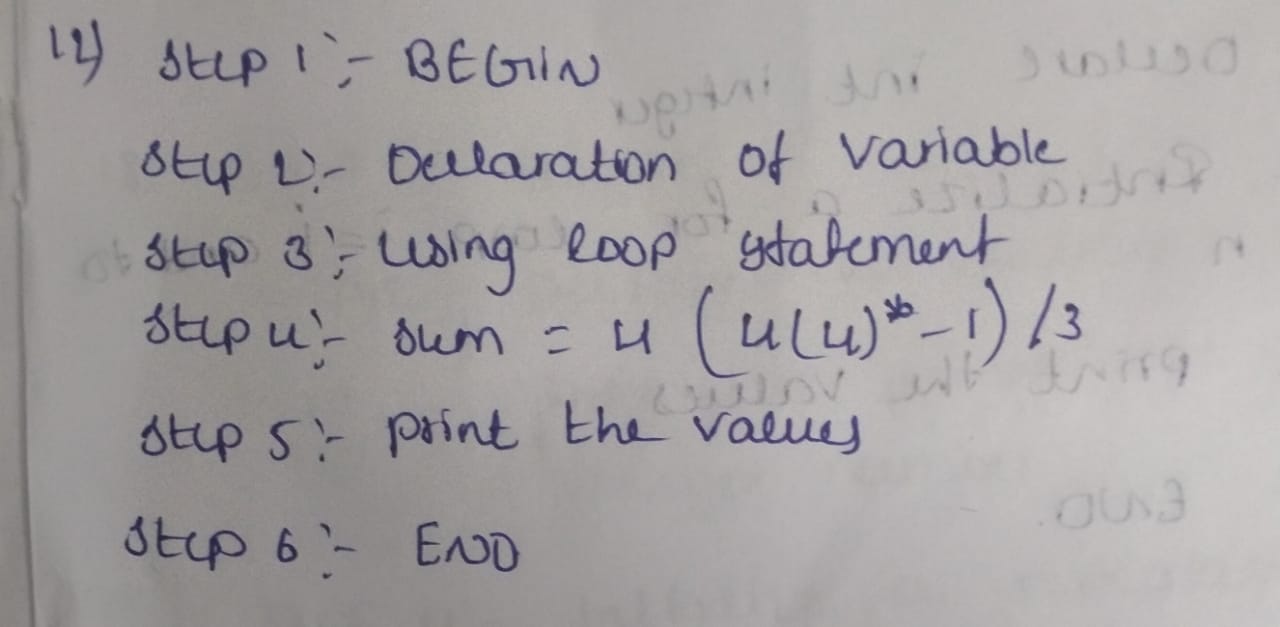 14) Step 1 :- BEGIN
Step 2 :- Declaration of variable
Step 3 :- Using loop statement
Step 4 :- sum = 4 (4(4)*-1)/3
Step 5 :- print the values
Step 6 :- END